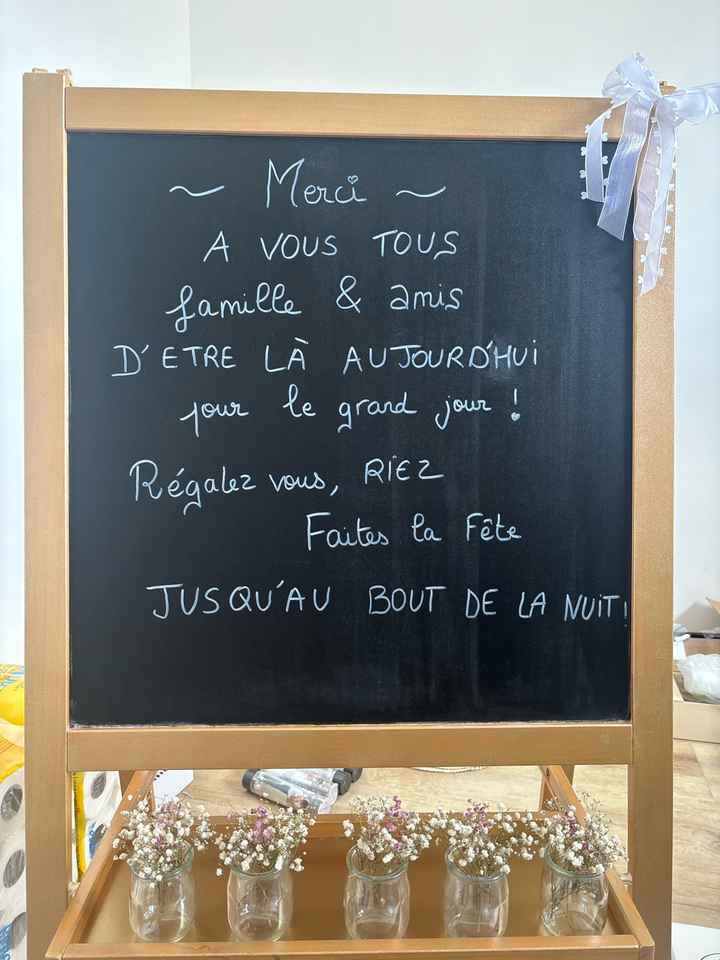 ~ Merci ~
A VOUS TOUS
famille & amis
D'ETRE LÀ AUJOURD'HUi
pour le grand jour !
Régalez vous, RiEZ
Faites la Fête
JUSQU'AU BOUT DE LA NUiT!